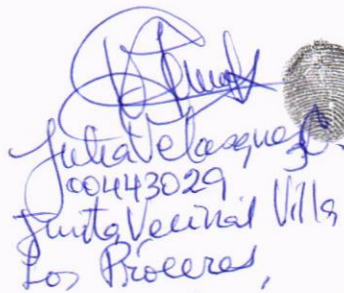 Julia Velasquez C.
00443029
Junta Vecinal Villa
Los Próceres,